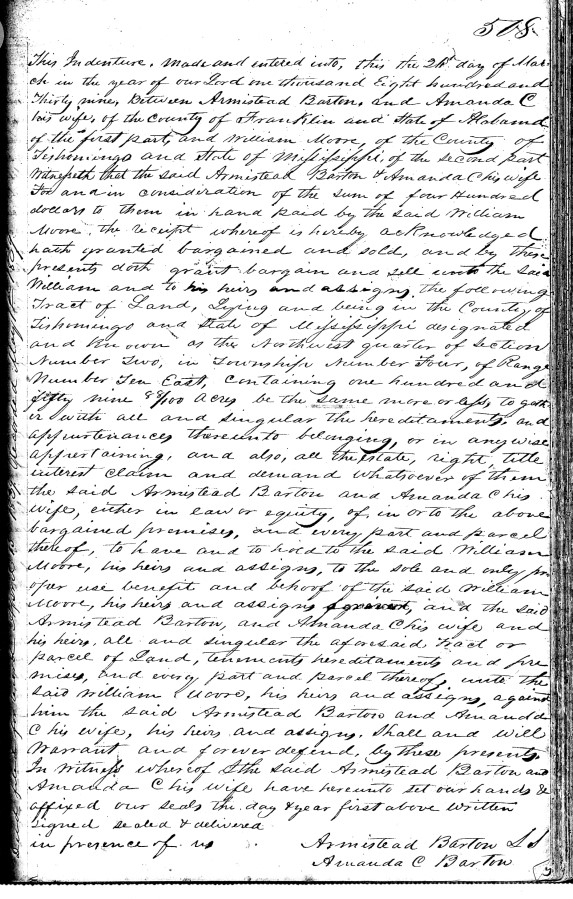 518
This Indenture, made and entered into, this the 2nd day of Mar
ch in the year of our Lord one thousand Eight hundred and
Thirty nine, Between Armistead Barton, and Amanda C
his wife, of the county of Franklin and State of Alabama
of the first part, and William Moore, of the County of
Tishomingo and State of Mississippi, of the second part
Witnesseth that the said Armistead Barton & Amanda C his wife
For and in consideration of the sum of four Hundred
dollars to them in hand paid by the said William
Moore the receipt whereof is hereby acknowledged
hath granted bargained and sold, and by these
presents doth grant bargain and sell unto the said
William and to his heirs and assigns, the following
Tract of Land, Lying and being in the County of
Tishomingo and State of Mississippi designated
and known as the Northwest quarter of Section
Number Two, in Township Number Four, of Range
Number Ten East, containing one hundred and
fifty nine 88/100 Acres be the same more or less, to geth
er with all and singular the hereditaments, and
appurtenances thereunto belonging, or in any wise
appertaining, and also, all the estate, right, title
interest claim and demand whatsoever of them
the said Armistead Barton and Amanda C his
wife, either in law or equity, of, in or to the above
bargained premises, and every part and parcel
thereof, to have and to hold to the said William
Moore, his heirs and assigns, to the sole and only pr
oper use benefit and behoof of the said William
Moore, his heirs and assigns forever, and the said
Armistead Barton, and Amanda C his wife and
his heirs, all and singular the aforesaid Tract or
parcel of Land, tenements hereditaments and pre
mises, and every part and parcel thereof, unto the
said William Moore, his heirs and assigns, against
him the said Armistead Barton and Amanda
C his wife, his heirs and assigns. Shall and will
Warrant and forever defend, by these presents.
In Witness whereof the said Armistead Barton and
Amanda C his wife have hereunto set our hands &
affixed our seals the day & year first above written
Signed sealed & delivered
in presence of us
Armistead Barton L S
Amanda C Barton